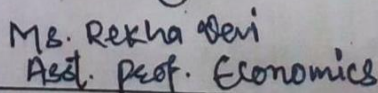 Ms. Rekha Devi
Asst. Prof. Economics